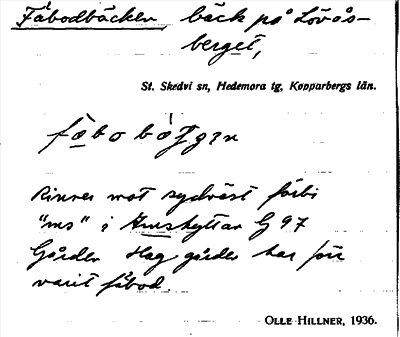 Fäbodbäcken bäck på Lövås-
berget,
St. Skedvi sn, Hedemora tg, Kopparbergs län.
Rinner mot sydväst förbi
"ms" i Amshyttan G 97
Gården Hag gården har förr
varit fäbod.
OLLE HILLNER, 1936.